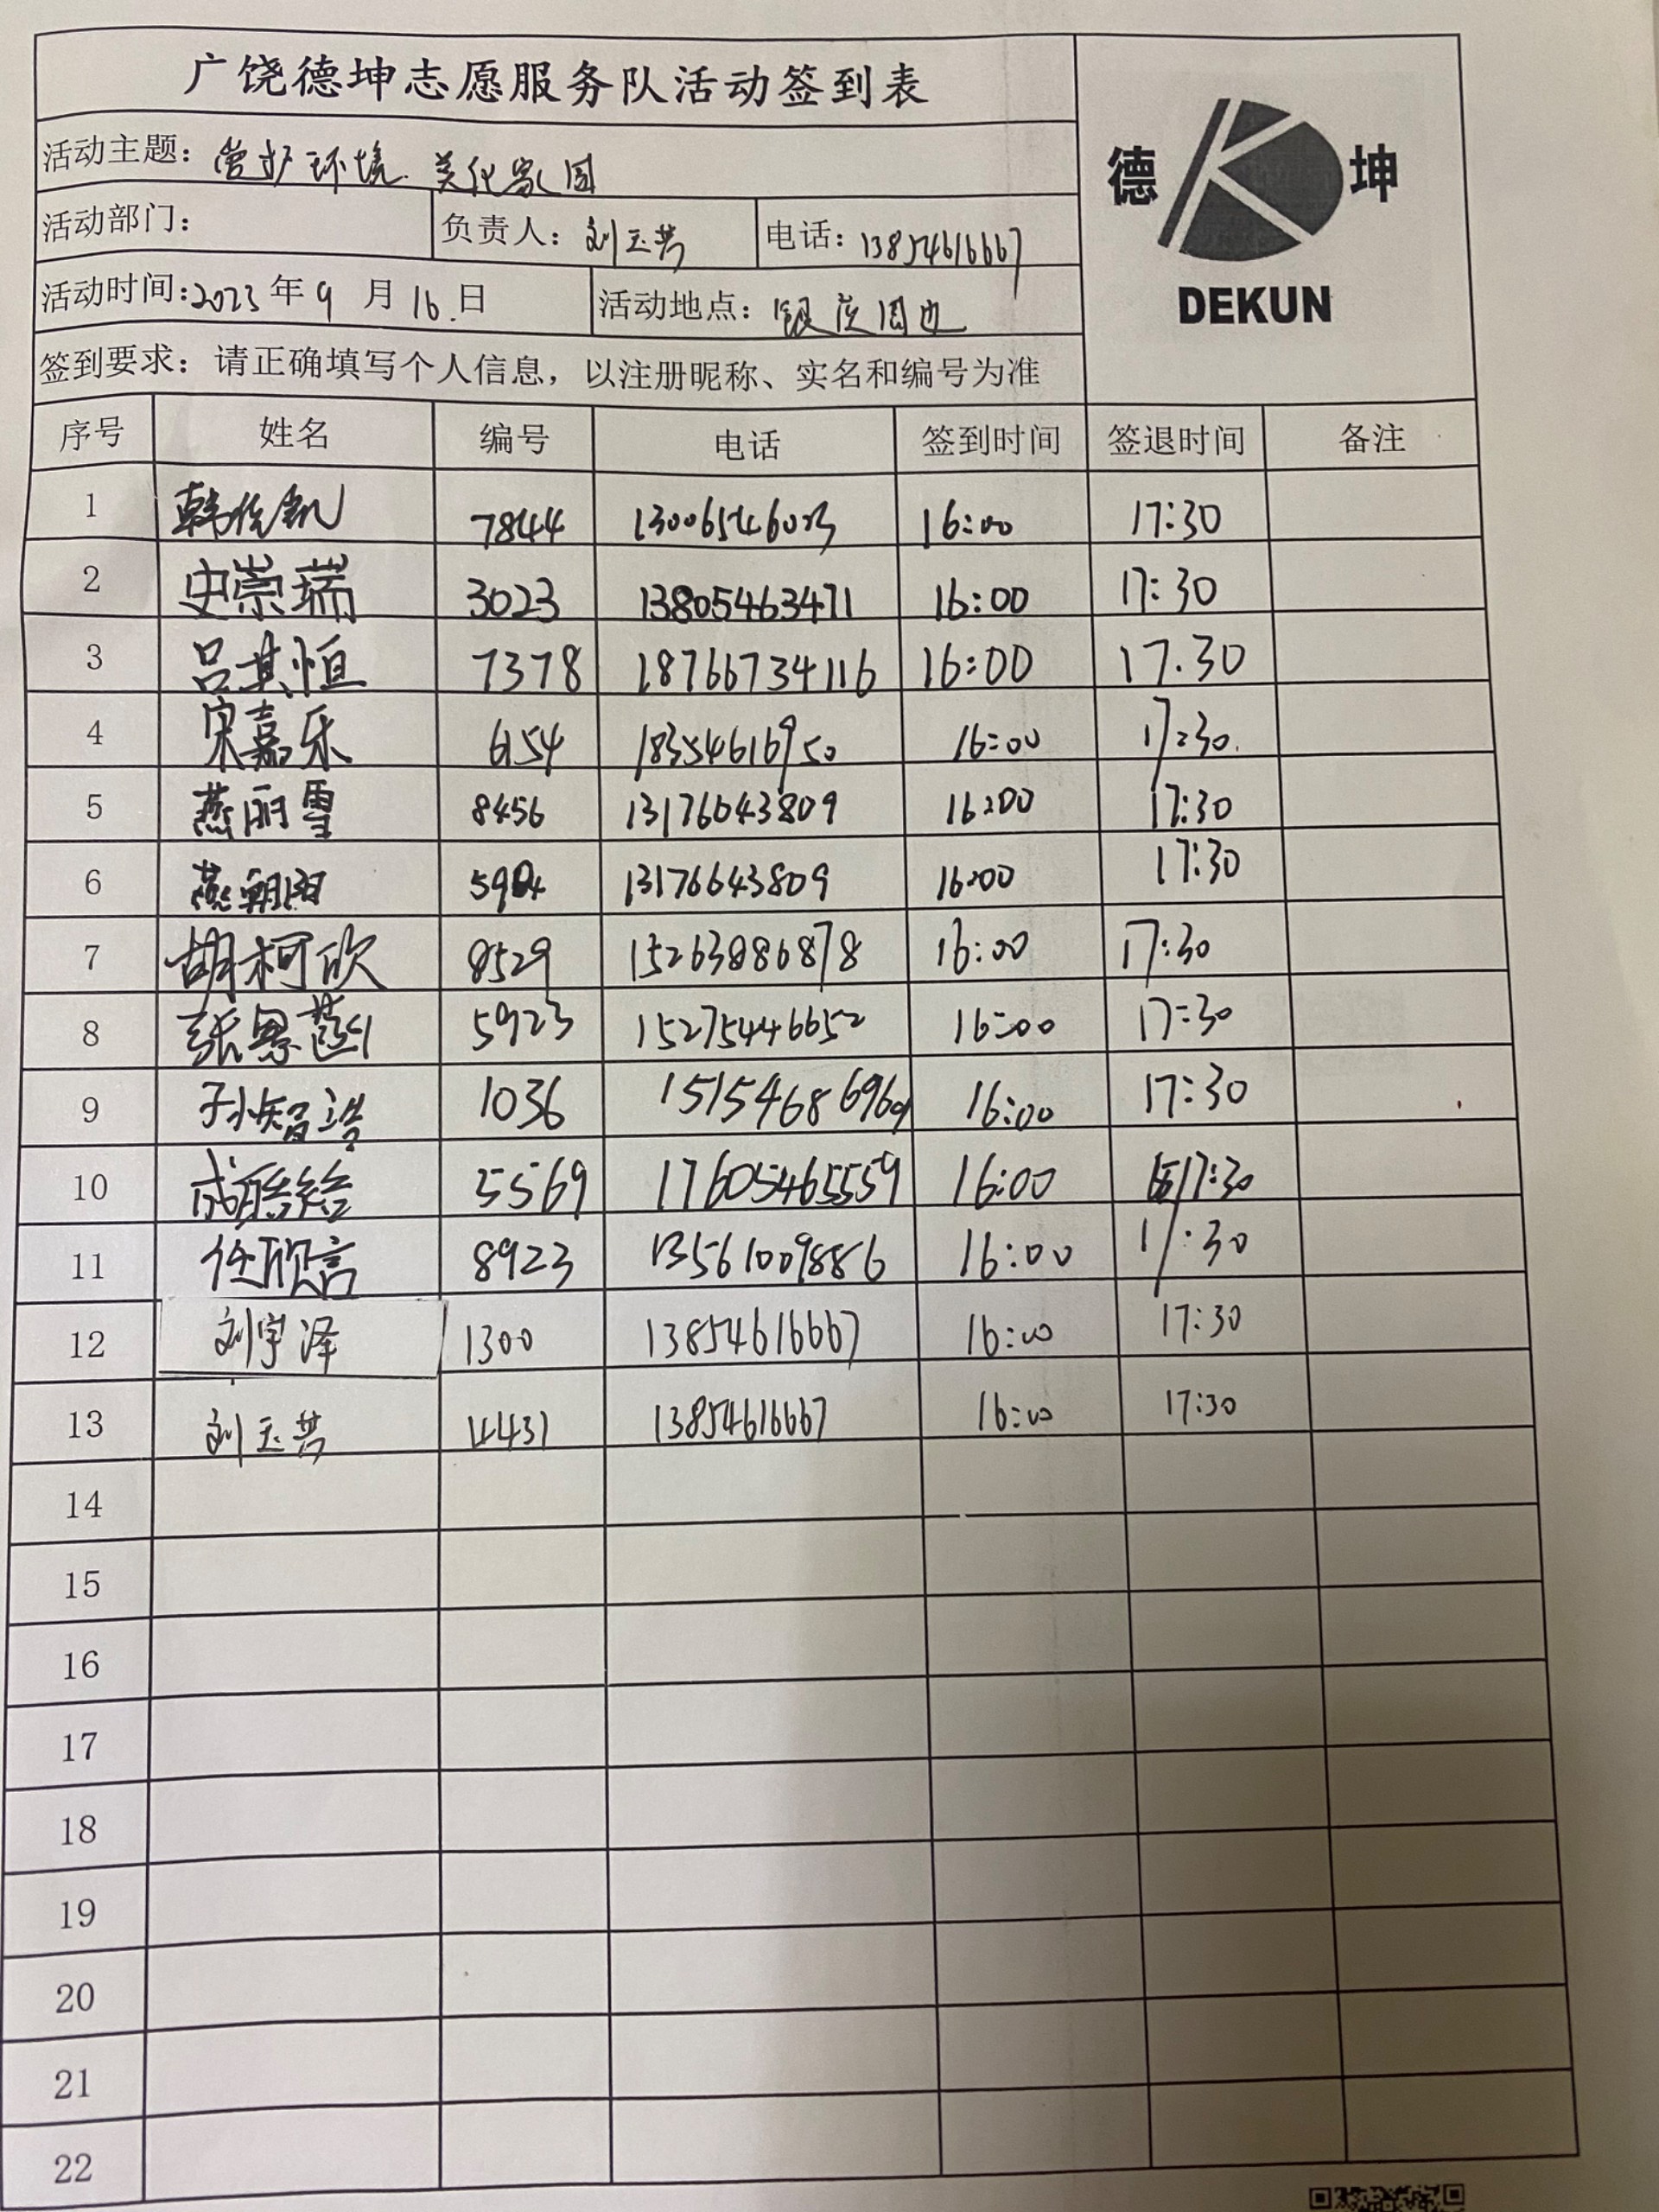 广饶德坤志愿服务队活动签到表
德 坤
DEKUN
活动主题：管护环境 美化家园
活动部门： 负责人：刘玉芳 电话：13854616667
活动时间：2023年9月16.日 活动地点：银座周边
签到要求：请正确填写个人信息，以注册昵称、实名和编号为准
序号 姓名 编号 电话 签到时间 签退时间 备注
1 7844 16:00 17:30
2 史崇瑞 3023 13805463471 16:00 17:30
3 吕其恒 7378 18766734116 16:00 17.30
4 宋嘉乐 6154 18354616950 16:00 17:30.
5 燕丽雪 8456 13176643809 16:00 17:30
6 燕朝阳 13176643809 16:00 17:30
7 胡柯欣 8529 15263886878 16:00 17:30
8 张恩 5923 15275446652 16:00 17:30
9 孙智浩 1036 16:00 17:30
10 成 5569 17605465559 16:00 17:30
11 任欣言 8923 13561009886 16:00 17:30
12 刘宇泽 1300 13854616667 16:00 17:30
13 刘玉芳 4431 13854616667 16:00 17:30
14
15
16
17
18
19
20
21
22